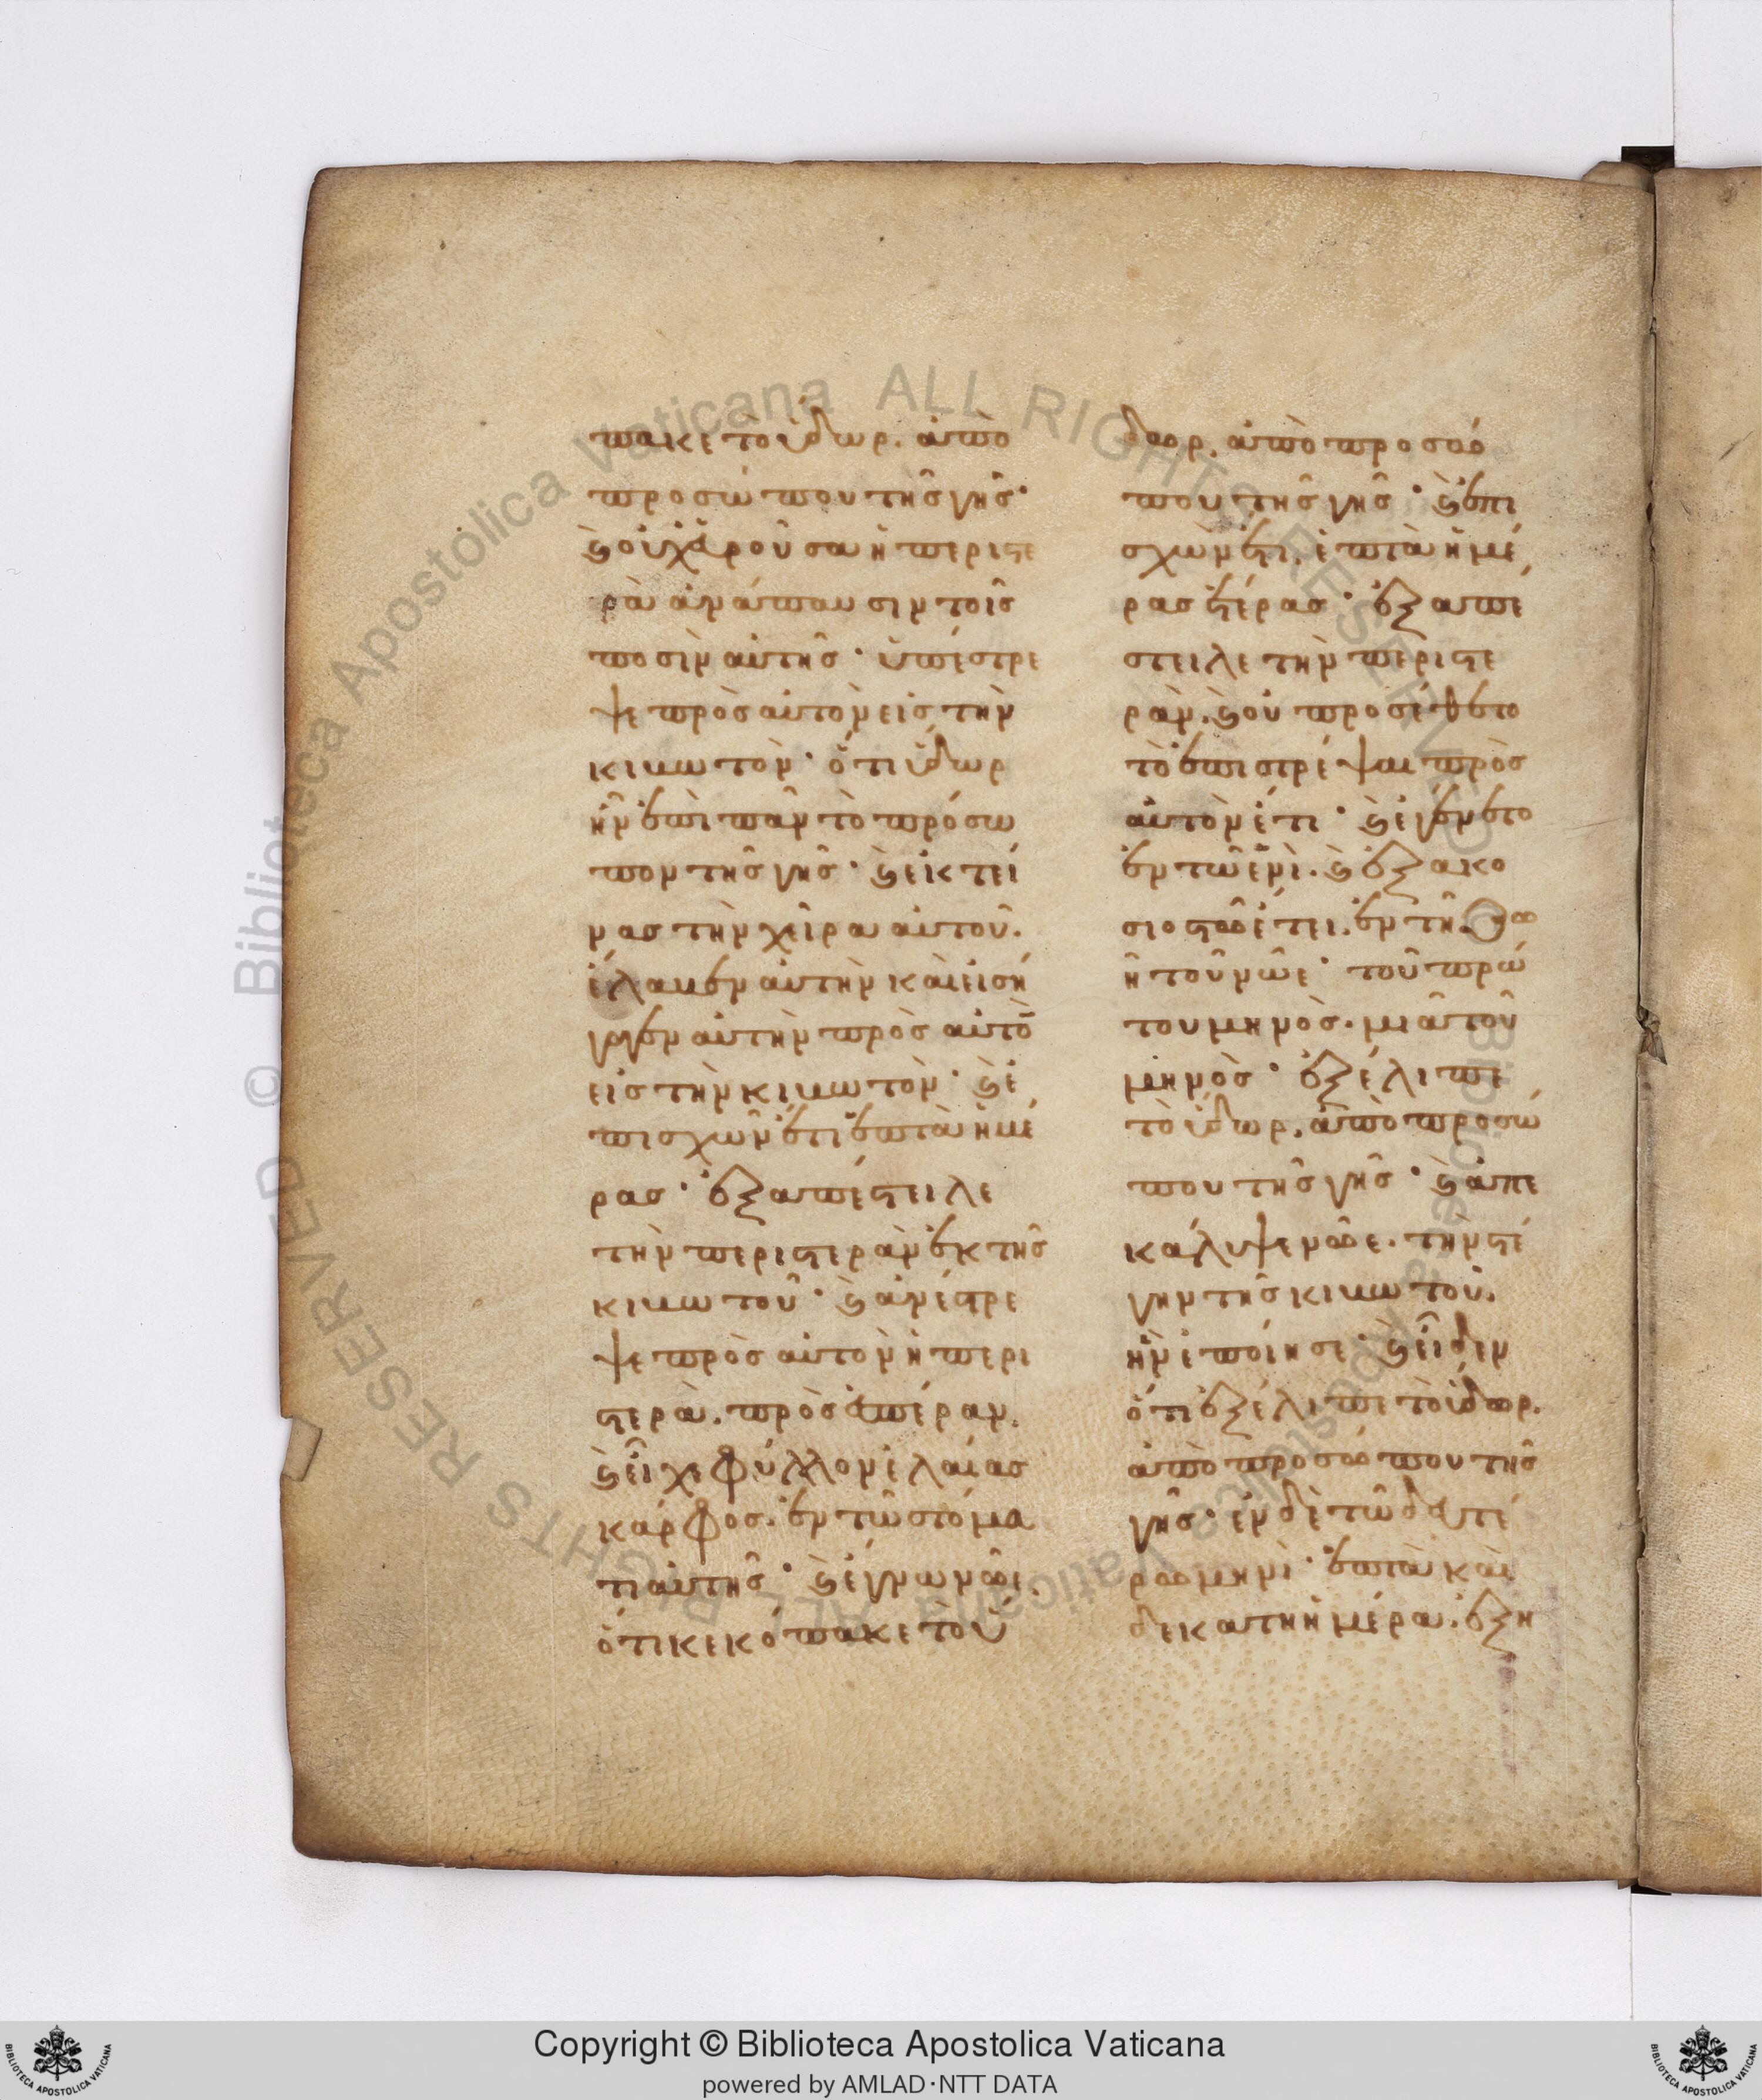 πακε τὸ ὕδωρ. ἀπὸ
προσώπου τῆς γῆς·
ϗ οὐχ εὑροῦσα ἡ περιστε
ρὰ ἀνάπαυσιν τοῖς
ποσὶν αὐτῆς· ὑπέστρε
ψε πρὸς αὐτὸν εἰς τὴν
κιβωτόν· ὅτι ὕδωρ
ἦν ἐπὶ πᾶν τὸ πρόσω
πον τῆς γῆς· ϗ ἐκτεί
νας τὴν χεῖρα αὐτοῦ.
ἔλαβεν αὐτὴν καὶ εἰσή
γαγεν αὐτὴν πρὸς αὐτὸ
εἰς τὴν κιβωτόν· ϗ ἐ
πισχὼν ἔτι ἑπτὰ ἡμέ
ρας· ἐξαπέστειλε
τὴν περιστερὰν ἐκ τῆς
κιβωτοῦ· ϗ ἀνέστρε
ψε πρὸς αὐτὸν ἡ περι
στερὰ. πρὸς ἑσπέραν.
ϗ εἶχε φύλλον ἐλαίας
κάρφος. ἐν τῷ στόμα
τι αὐτῆς· ϗ ἔγνω νῶε.
ὅτι κεκόπακε τὸ ὕ
δωρ. ἀπὸ προσώ
που τῆς γῆς· ϗ ἐπι
σχὼν ἔτι. ἑπτὰ ἡμέ
ρας ἑτέρας· ἐξαπέ
στειλε τὴν περιστε
ρὰν. ϗ οὐ προσέθετο
τὸ ἐπιστρέψαι πρὸς
αὐτὸν ἔτι· ϗ ἐγένετο
ἐν τῷ ἑνὶ. ϗ ἑξακο
σιοστῷ ἔτει. ἐν τῇ ζω
ῇ τοῦ νῶε· τοῦ πρώ
του μηνὸς. μιᾷ τοῦ
μηνὸς· ἐξέλιπε
τὸ ὕδωρ. ἀπὸ προσώ
που τῆς γῆς· ϗ ἀπε
κάλυψε νῶε. τὴν στέ
γην τῆς κιβωτοῦ.
ἣν ἐποίησε· ϗ εἶδεν
ὅτι ἐξέλιπε τὸ ὕδωρ.
ἀπὸ προσώπου τῆς
γῆς· ἐν δὲ τῷ δευτέ
ρω μηνὶ· ἑπτὰ καὶ
δεκάτη ἡμέρα. ἐξη
Copyright © Biblioteca Apostolica Vaticana
powered by AMLAD·NTT DATA